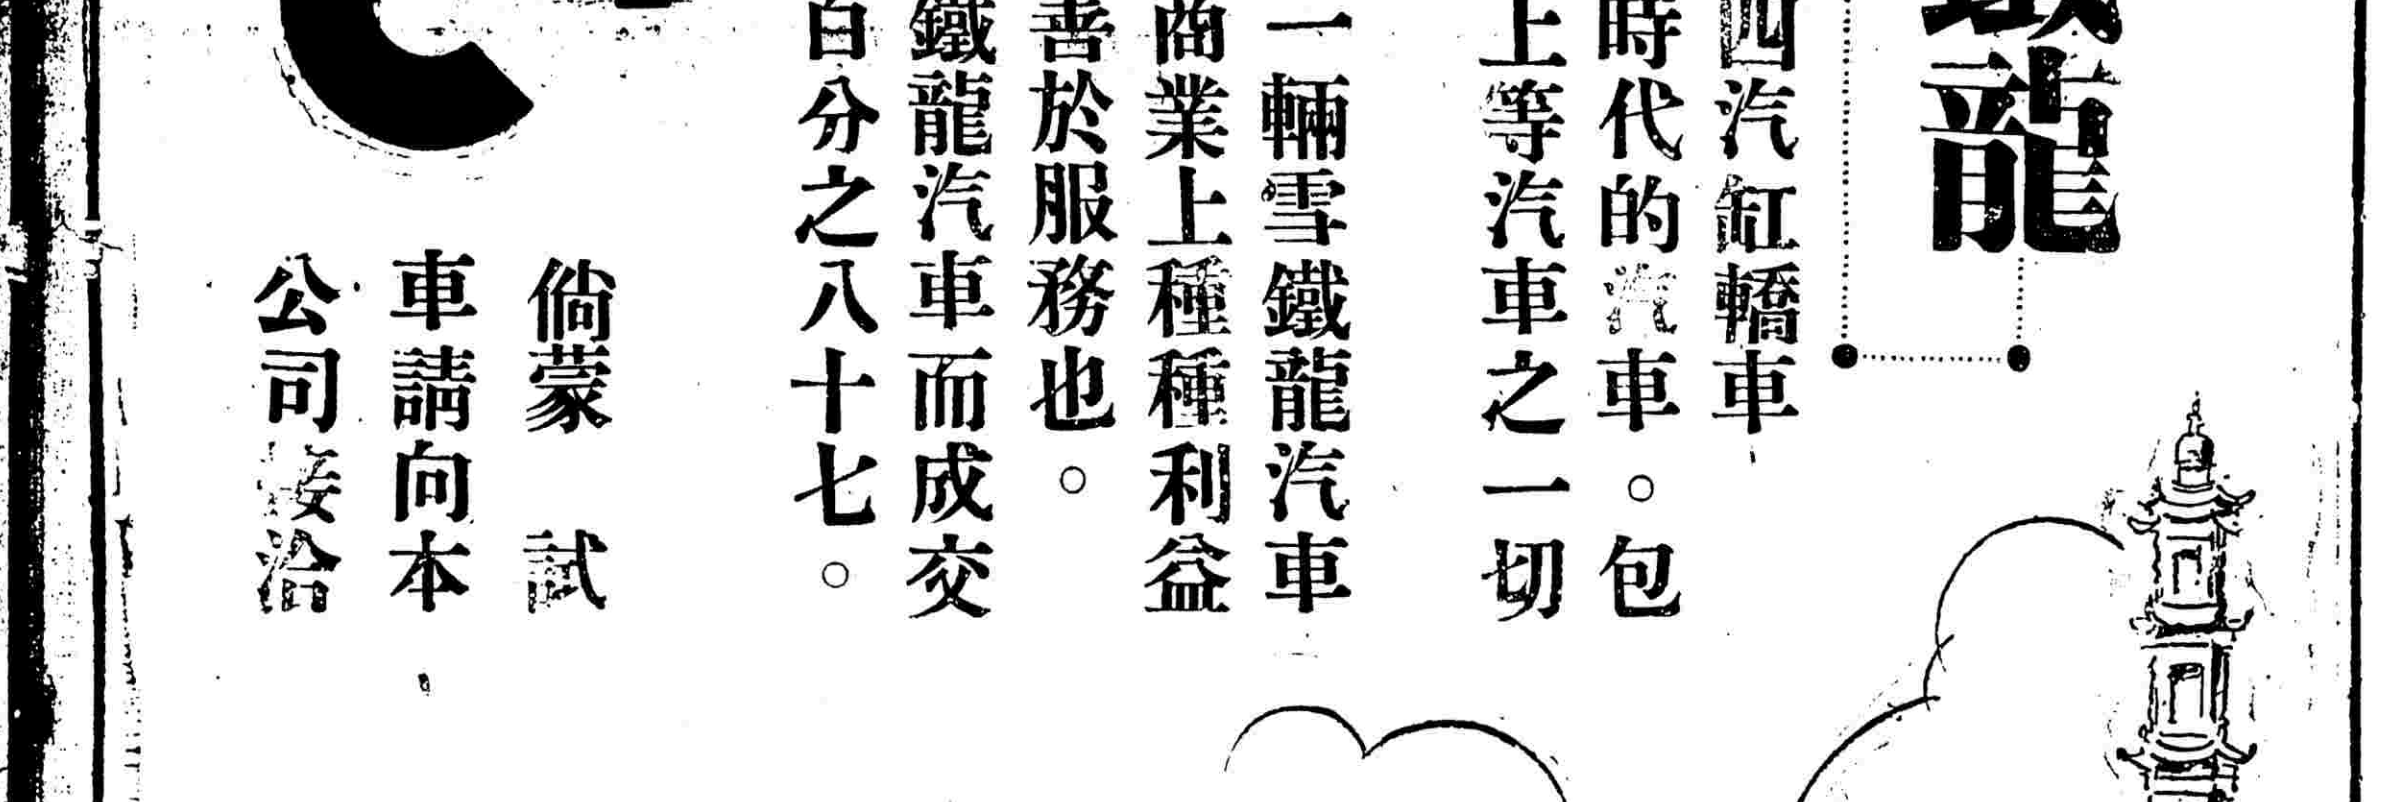 鐵龍
四汽缸轎車
時代的汽車。包
上等汽車之一切
一輛雪鐵龍汽車
商業上種種利益
善於服務也。
鐵龍汽車而成交
百分之八十七。
倘蒙 試
車請向本
公司接洽